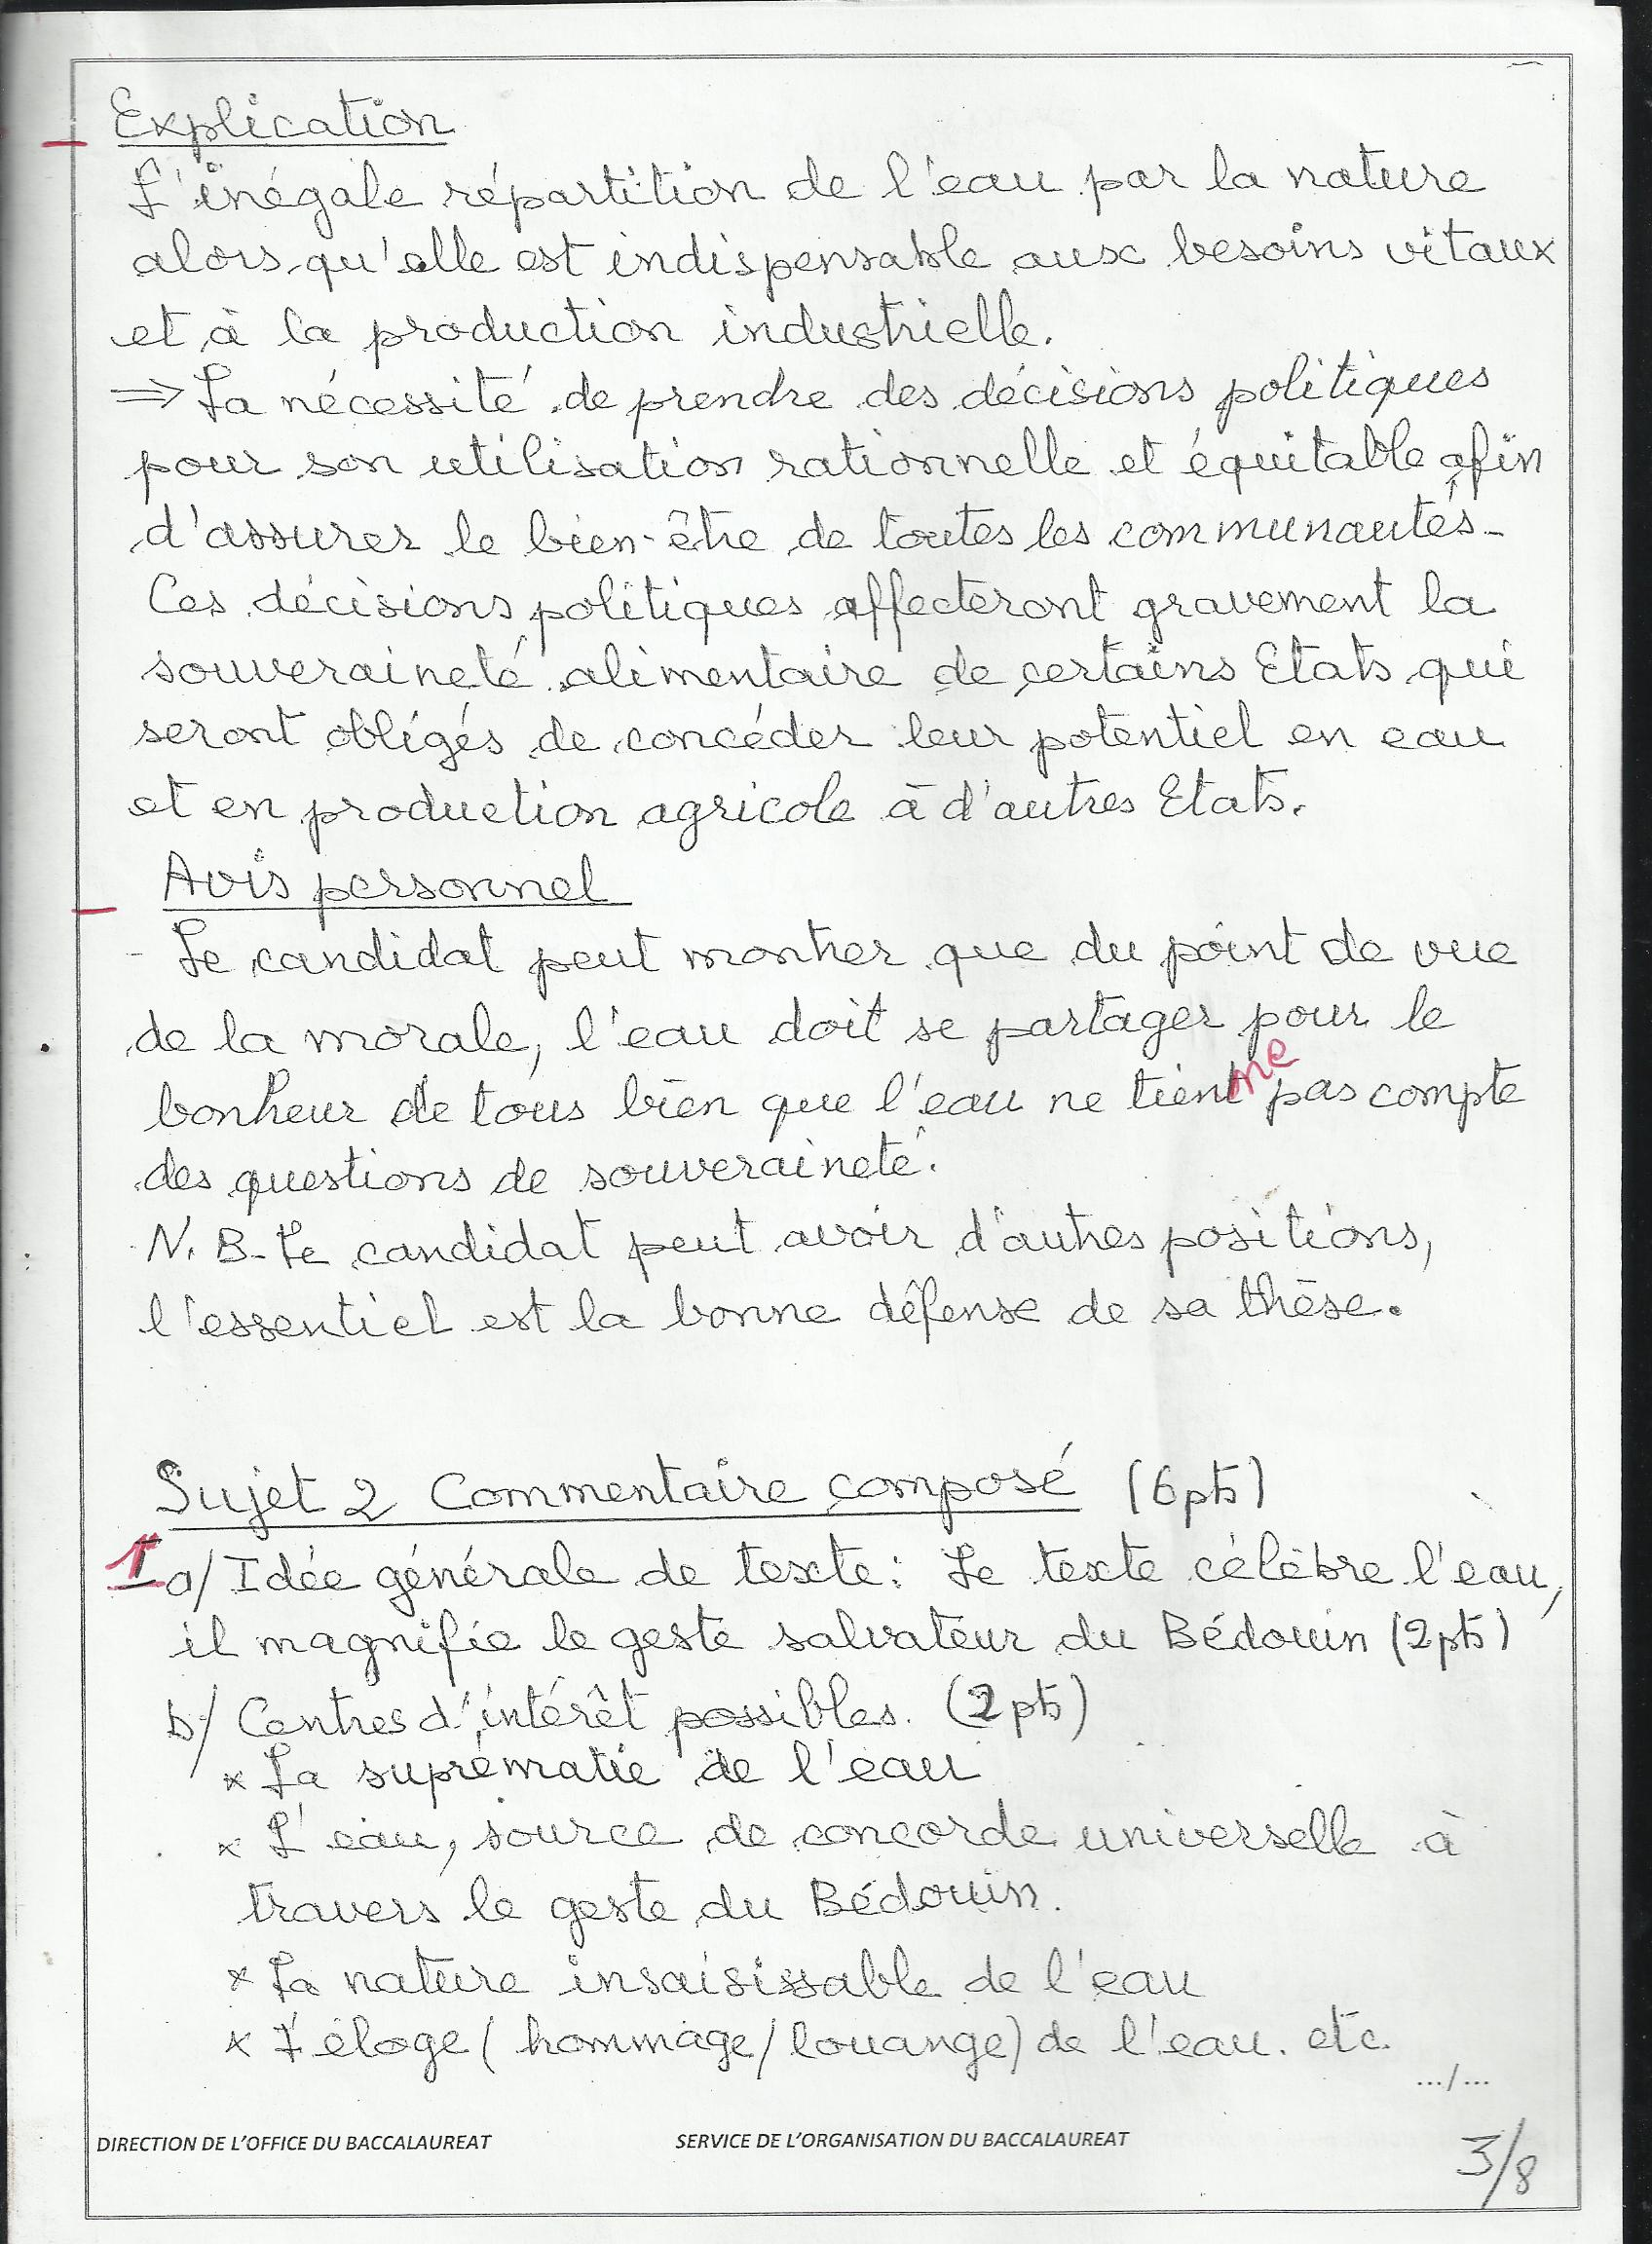 Explication
L'inégale répartition de l'eau par la nature
alors qu'elle est indispensable aux besoins vitaux
et à la production industrielle.
⇒ La nécessité de prendre des décisions politiques
pour son utilisation rationnelle et équitable afin
d'assurer le bien-être de toutes les communautés.
Ces décisions politiques affecteront gravement la
souveraineté alimentaire de certains Etats qui
seront obligés de concéder leur potentiel en eau
et en production agricole à d'autres Etats.
Avis personnel
- Le candidat peut montrer que du point de vue
de la morale, l'eau doit se partager pour le
bonheur de tous bien que l'eau ne tienne pas compte
des questions de souveraineté.
N.B- Le candidat peut avoir d'autres positions,
l'essentiel est la bonne défense de sa thèse.
Sujet 2 Commentaire composé (6pts)
1 a/ Idée générale de texte: Le texte célèbre l'eau,
il magnifie le geste salvateur du Bédouin (2pts)
b/ Centres d'intérêt possibles. (2pts)
* La suprématie de l'eau
* L'eau, source de concorde universelle à
travers le geste du Bédouin.
* La nature insaisissable de l'eau
* L'éloge (hommage/louange) de l'eau. etc.
.../...
DIRECTION DE L'OFFICE DU BACCALAUREAT SERVICE DE L'ORGANISATION DU BACCALAUREAT
3/8